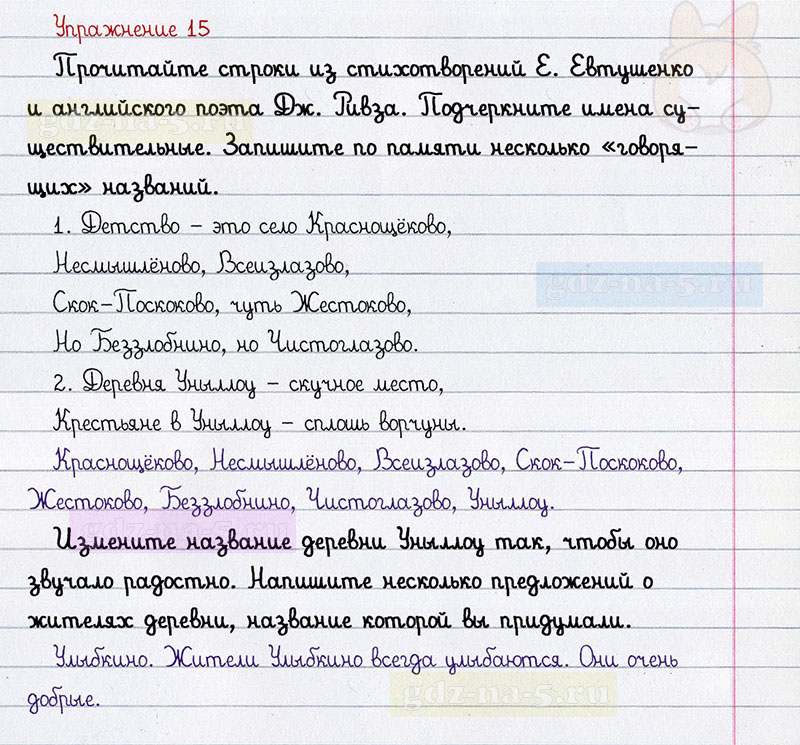 Упражнение 15
Прочитайте строки из стихотворений Е. Евтушенко
и английского поэта Дж. Ривза. Подчеркните имена су-
ществительные. Запишите по памяти несколько «говоря-
щих» названий.
1. Детство – это село Краснощёково,
Несмышлёново, Всеизлазово,
Скок-Поскоково, чуть Жестоково,
Но Беззлобнино, но Чистоглазово.
2. Деревня Уныллоу – скучное место,
Крестьяне в Уныллоу – сплошь ворчуны.
Краснощёково, Несмышлёново, Всеизлазово, Скок-Поскоково,
Жестоково, Беззлобнино, Чистоглазово, Уныллоу.
Измените название деревни Уныллоу так, чтобы оно
звучало радостно. Напишите несколько предложений о
жителях деревни, название которой вы придумали.
Улыбкино. Жители Улыбкино всегда улыбаются. Они очень
добрые.
gdz-na-5.ru
gdz-na-5.ru
gdz-na-5.ru
gdz-na-5.ru